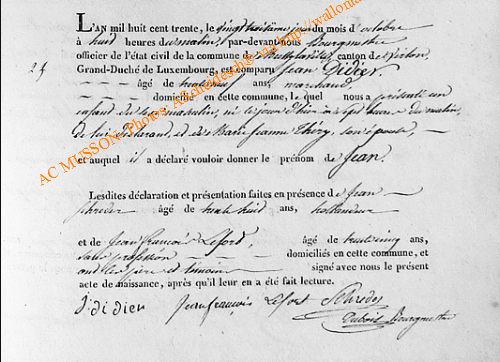 L'AN mil huit cent trente, le vingt huitième jour du mois d'octobre
à huit heures du matin, par-devant nous Bourgmestre
officier de l'état civil de la commune de canton de Virton,
24
Grand-Duché de Luxembourg, est comparu Jean Didier,
âgé de ans, marchand
domicilié en cette commune, lequel nous a présenté un
enfant du sexe masculin, né le jour d'hier à sept heures du matin,
de lui déclarant, et de Marie Jeanne Thiry, son épouse,
et auquel il a déclaré vouloir donner le prénom de Jean.
Lesdites déclaration et présentation faites en présence de Jean
Schreder âgé de trente huit ans,
et de Jean François Lefort, âgé de trente cinq ans,
sans profession domiciliés en cette commune, et
ont les père et témoins signé avec nous le présent
acte de naissance, après qu'il leur en a été fait lecture.
J didier Jean françois Lefort Schreder
Dubois Bourgmestre
AC MUSSON Photos